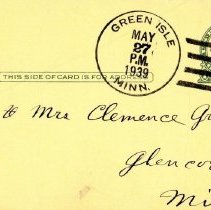 GREEN ISLE
MAY
27
P.M.
1939
MINN.
THIS SIDE OF CARD IS FOR ADDRESS
to Mrs Clemence
Glenco
Mi